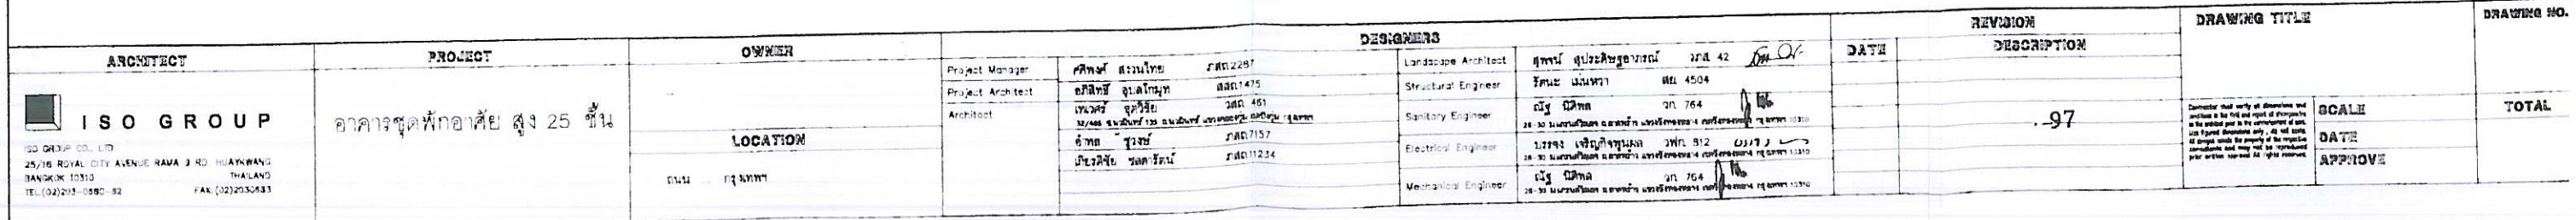 ARCHITECT
ISO GROUP
ISO GROUP CO., LTD
25/16 ROYAL CITY AVENUE RAMA 9 RD. HUAYKWANG
BANGKOK 10310 THAILAND
TEL.(02)203-0580-82 FAX.(02)2030583
PROJECT
อาคารชุดพักอาศัย สูง 25 ชั้น
OWNER
LOCATION
ถนน กรุงเทพฯ
DESIGNERS
Project Manager สงวนไทย ภสถ2287
Project Architect อภิสิทธิ์ อุบลโกมุท สสถ1475
Architect เทเวศร์ วสถ 461
อำพล ชูวงษ์ ภสถ7157
เกียรติชัย ชลดารัตน์ ภสถ11234
Landscape Architect สุพจน์ สุประดิษฐอาภรณ์ วภส 42
Structural Engineer รัตนะ เม่นหวา สย 4504
Sanitary Engineer ณัฐ นิติพล วก 764
Electrical Engineer บรรจง เจริญกิจพูนผล วฟก 812
Mechanical Engineer ณัฐ นิติพล วก 764
REVISION
DATE DESCRIPTION
..97
DRAWING TITLE
Contractor shall verify all dimensions and
SCALE
DATE
APPROVE
DRAWING NO.
TOTAL